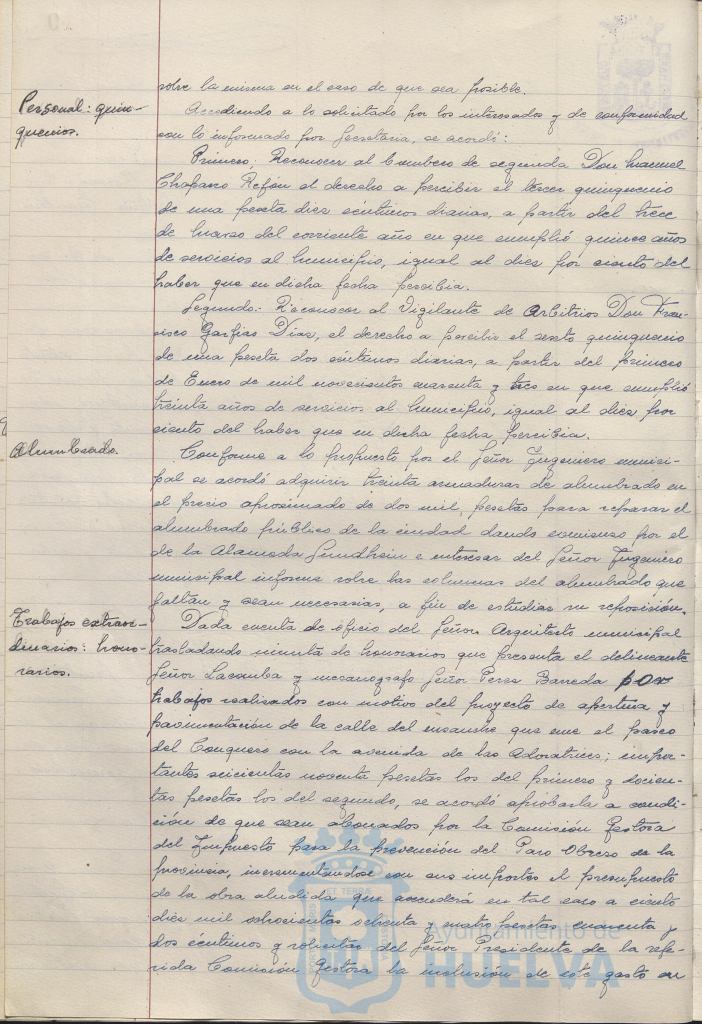 sobre la misma en el caso de que sea posible.
Personal: quin-
quenios.
Accediendo a lo solicitado por los interesados y de conformidad
con lo informado por Secretaría, se acordó:
Primero: Reconocer al Bombero de segunda Don Manuel
Chaparro el derecho a percibir el tercer quinquenio
de una peseta diez céntimos diarias, a partir del trece
de Marzo del corriente año en que cumplió quince años
de servicios al Municipio, igual al diez por ciento del
haber que en dicha fecha percibia.
Segundo: Reconocer al Vigilante de Arbitrios Don Fran-
cisco Garfias Diaz, el derecho a percibir el sexto quinquenio
de una peseta dos céntimos diarias, a partir del primero
de Enero de mil novecientos cuarenta y tres en que cumplió
treinta años de servicios al Municipio, igual al diez por
ciento del haber que en dicha fecha percibia.
Alumbrado.
Conforme a lo propuesto por el Señor Ingeniero munici-
pal se acordó adquirir treinta armaduras de alumbrado en
el precio aproximado de dos mil pesetas para reparar el
alumbrado público de la ciudad dando comienzo por el
de la Alameda Sundhein e interesar del Señor Ingeniero
municipal informe sobre las columnas del alumbrado que
faltan y sean necesarias, a fin de estudiar su reposición.
Trabajos extraor-
dinarios: hono-
rarios.
Dada cuenta de oficio del Señor Arquitecto municipal
trasladando minuta de honorarios que presenta el delineante
Señor Lacomba y mecanografo Señor Perez Barreda por
trabajos realizados con motivo del proyecto de apertura y
pavimentación de la calle del ensanche que une el paseo
del Conquero con la avenida de las Adoratrices; impor-
tantes seiscientas noventa pesetas los del primero y doscien-
tas pesetas los del segundo, se acordó aprobarla a condi-
ción de que sean abonados por la Comisión Gestora
del Impuesto para la prevención del Paro Obrero de la
provincia, incrementandose con sus importes el presupuesto
de la obra aludida que ascenderá en tal caso a ciento
diez mil ochocientas ochenta y cuatro pesetas cincuenta y
dos céntimos y solicitar del Señor Presidente de la refe-
rida Comisión Gestora la inclusión de este gasto en
Ayuntamiento de
HUELVA